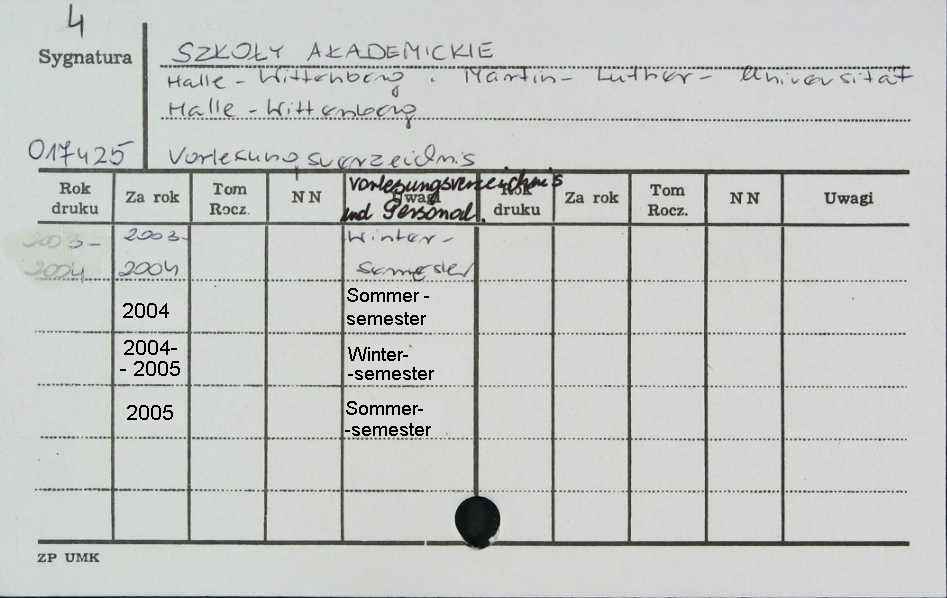 4
Sygnatura
SZKOŁY AKADEMICKIE
Halle - Wittenberg . Martin - Luther - Universität
Halle - Wittenberg
017425
Vorlesungsverzeichnis
Rok druku Za rok Tom Rocz. NN Uwagi Rok druku Za rok Tom Rocz. NN Uwagi
Vorlesungsverzeichnis
und Personal.
2003- 2003- Winter-
2004 2004 semester
2004 Sommer -
semester
2004- Winter-
- 2005 -semester
2005 Sommer-
-semester
ZP UMK